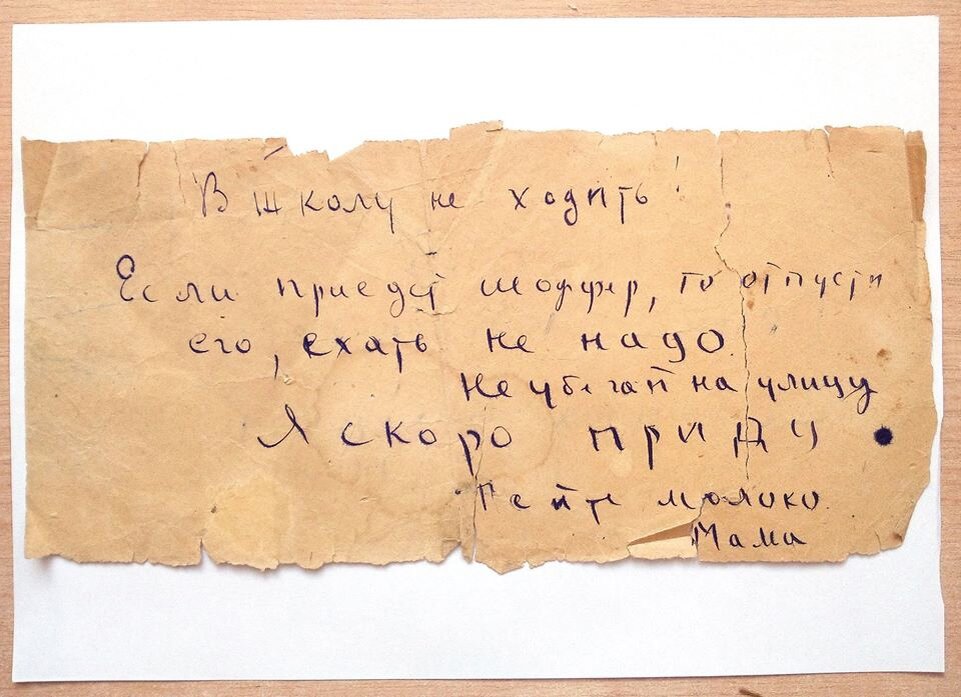 В школу не ходить!
Если приедет шоффер, то отпусти
его, ехать не надо.
Не убегай на улицу
Я скоро приду
Пейте молоко.
Мама